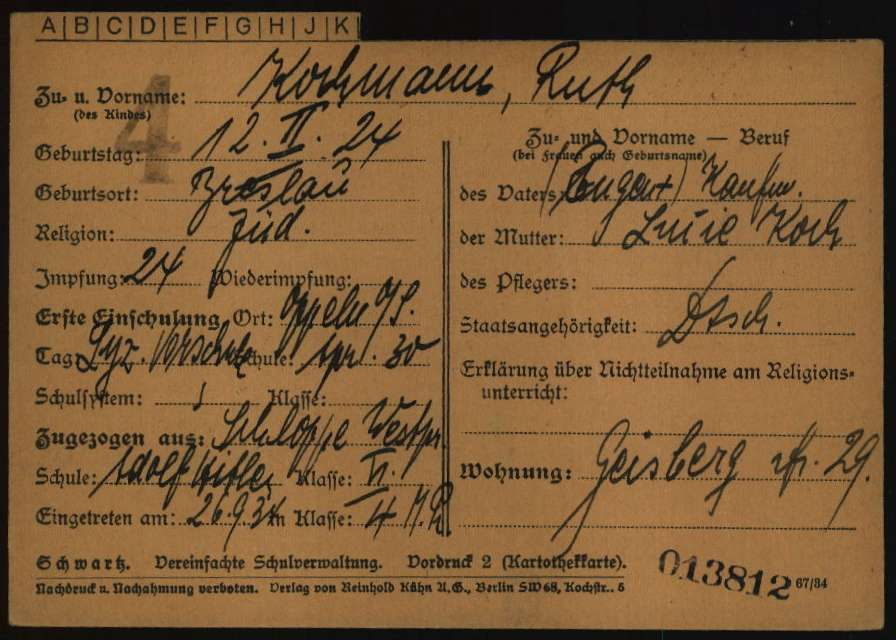 A|B|C|D|E|F|G|H|J|K
4
Zu- u. Vorname: Kochmann, Ruth
(des Kindes)
Geburtstag: 12. II. 24
Geburtsort: Breslau
Religion: jüd.
Impfung: 24 Wiederimpfung:
Erste Einschulung Ort: Oppeln O/S.
Tag: Lyz. Vorschule Schule: Apr. 30
Schulsystem: Klasse:
Zugezogen aus: Schloppe Westpr.
Schule: Adolf Hitler Klasse: VI.
Eingetreten am: 26.9.34 in Klasse: 4
Zu- und Vorname — Beruf
(bei Frauen auch Geburtsname)
des Vaters: Kaufm.
der Mutter: Luzie Koch
des Pflegers:
Staatsangehörigkeit: Dtsch.
Erklärung über Nichtteilnahme am Religions-
unterricht:
Wohnung: Geisberg str. 29.
Schwartz. Vereinfachte Schulverwaltung. Vordruck 2 (Kartothekkarte).
Nachdruck u. Nachahmung verboten. Verlag von Reinhold Kühn A.G., Berlin SW 68, Kochstr. 5
013812
67/34